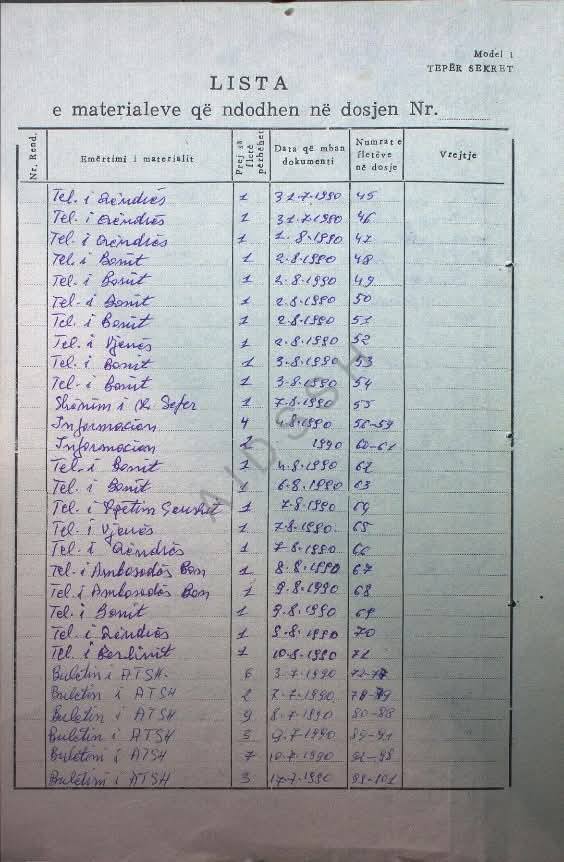 Model 1
TEPËR SEKRET
LISTA
e materialeve që ndodhen në dosjen Nr.
Nr. Rend. Emërtimi i materialit Prej sa fletë përbëhet Data që mban dokumenti Numrat e fletëve në dosje Vrejtje
Tel. i Qëndrës 1 31.7.1990 45
Tel. i Qëndrës 1 31.7.1990 46
Tel. i Qëndrës 1 1.8.1990 47
Tel. i Bonit 1 2.8.1990 48
Tel. i Bonit 1 2.8.1990 49
Tel. i Bonit 1 2.8.1990 50
Tel. i Bonit 1 2.8.1990 51
Tel. i Vjenës 1 2.8.1990 52
Tel. i Bonit 1 3.8.1990 53
Tel. i Bonit 1 3.8.1990 54
Shënim i Sefer 1 7.8.1990 55
Informacion 4 4.8.1990 56-59
Informacion 2 1990 60-61
Tel. i Bonit 1 4.8.1990 62
Tel. i Bonit 1 6.8.1990 63
Tel. i 1 7.8.1990 64
Tel. i Vjenës 1 7.8.1990 65
Tel. i Qëndrës 1 7.8.1990 66
Tel. i Ambasadës Bon 1 8.8.1990 67
Tel. i Ambasadës Bon 1 9.8.1990 68
Tel. i Bonit 1 9.8.1990 69
Tel. i Qëndrës 1 9.8.1990 70
Tel. i Berlinit 1 10.8.1990 71
Buletin i ATSH. 6 3.7.1990 72-77
Buletin i ATSH 2 7.7.1990 78-79
Buletin i ATSH 9 8.7.1990 80-88
Buletin i ATSH 3 9.7.1990 89-91
Buletin i ATSH 7 10.7.1990 92-98
Buletin i ATSH 3 17.7.1990 99-101
AIDSSH